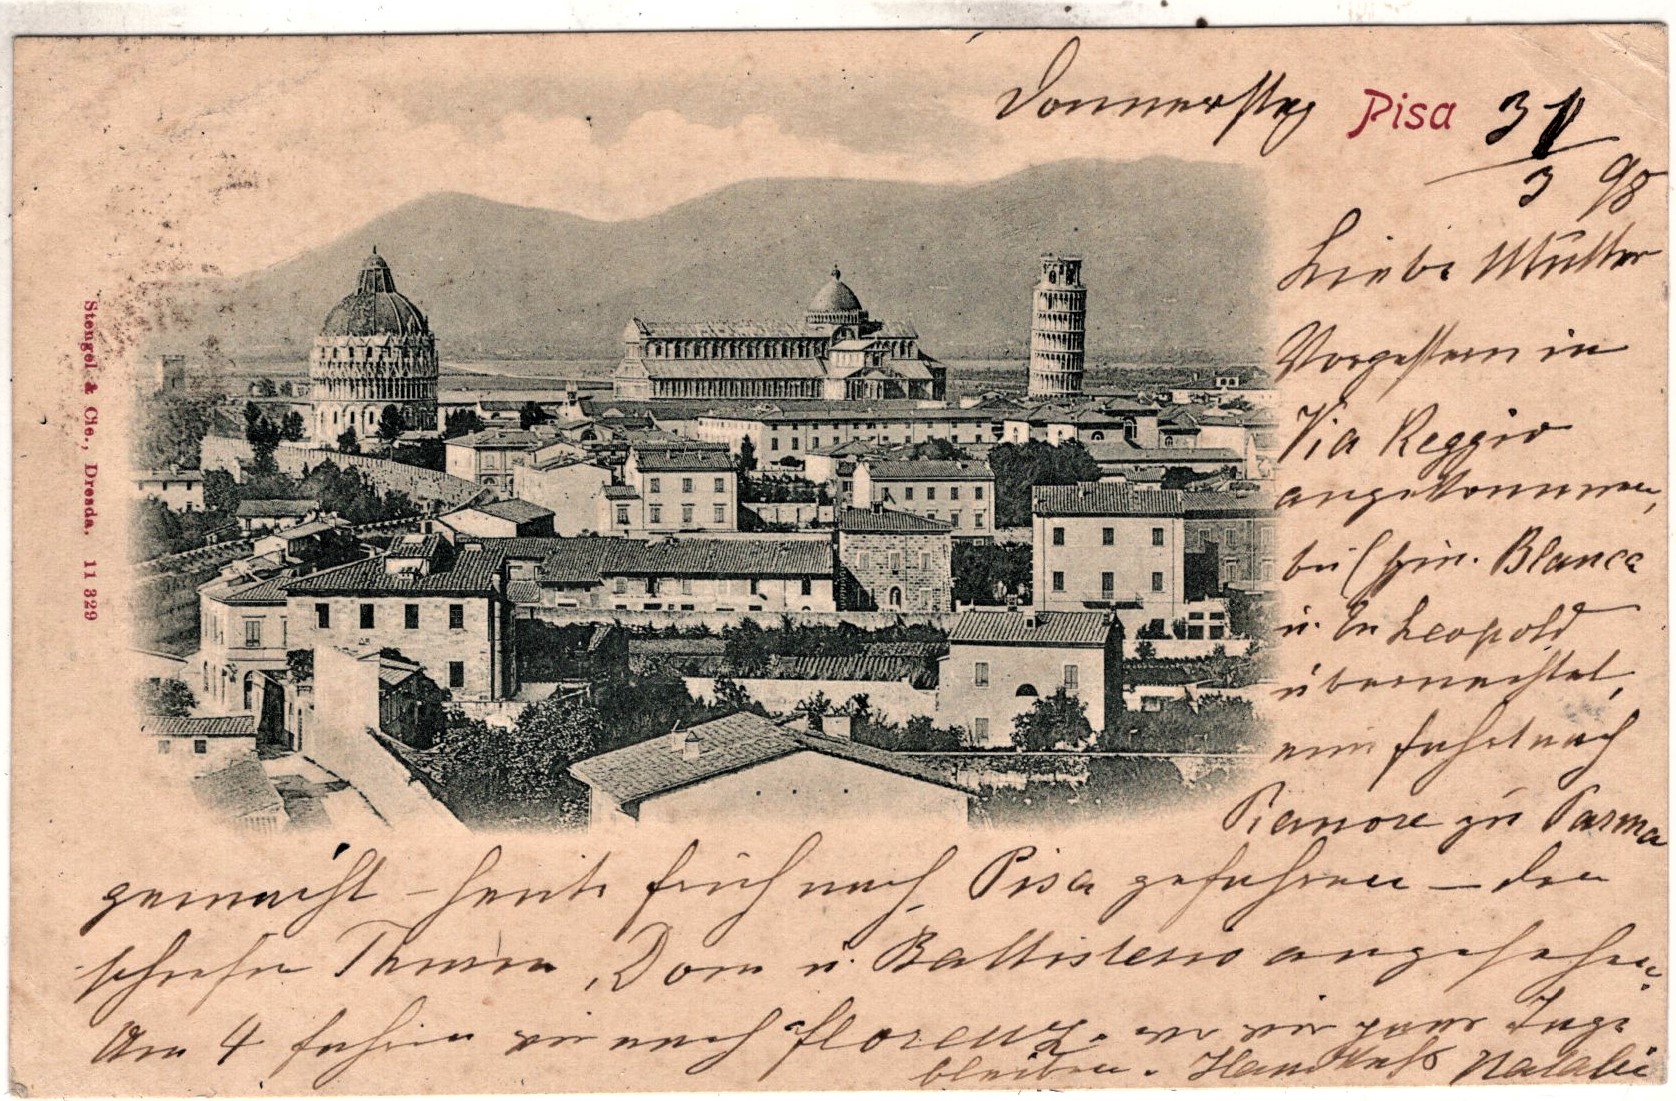 Donnerstag Pisa 31/3 98
Liebe Mutter
Vorgestern in
Via Reggio
angekommen,
bei Blanca
u. Leopold
übernachtet,
eine fahrt nach
Pianore zu Parma
gemacht – heute früh nach Pisa gefahren – den
schiefen Thurm, Dom u. Battisterio angesehen.
Um 4 fahren wir nach Florenz. wo wir paar Tage
bleiben. Handkuß Natalie
Stengel & Cie., Dresda. 11 329